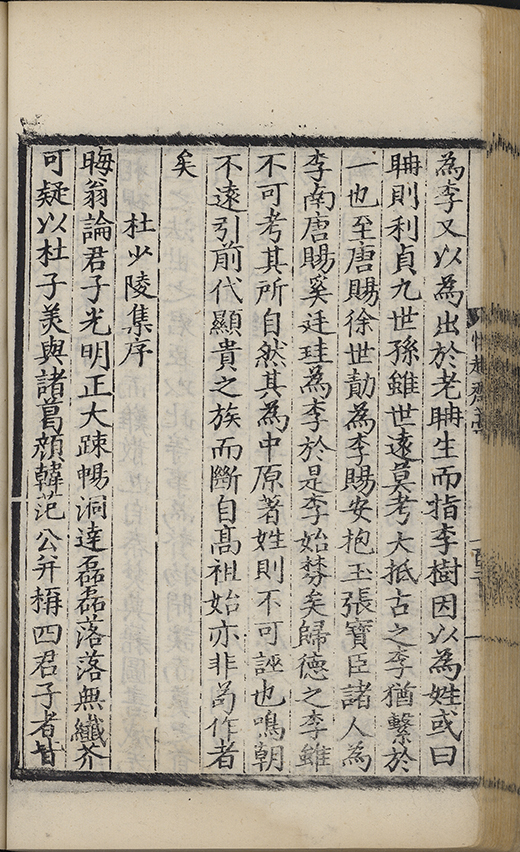 為李又以為出於老聃生而指李樹因以為姓或曰
聃則利貞九世孫雖世遠莫考大抵古之李猶繫於
一也至唐賜徐世勣為李賜安抱玉張寶臣諸人為
李南唐賜奚廷珪為李於是李始棼矣歸德之李雖
不可考其所自然其為中原著姓則不可誣也鳴朝
不遠引前代顯貴之族而斷自高祖始亦非苟作者
矣
杜少陵集序
晦翁論君子光明正大疎暢洞達磊磊落落無纖芥
可疑以杜子美與諸葛顏韓范公并稱四君子者皆